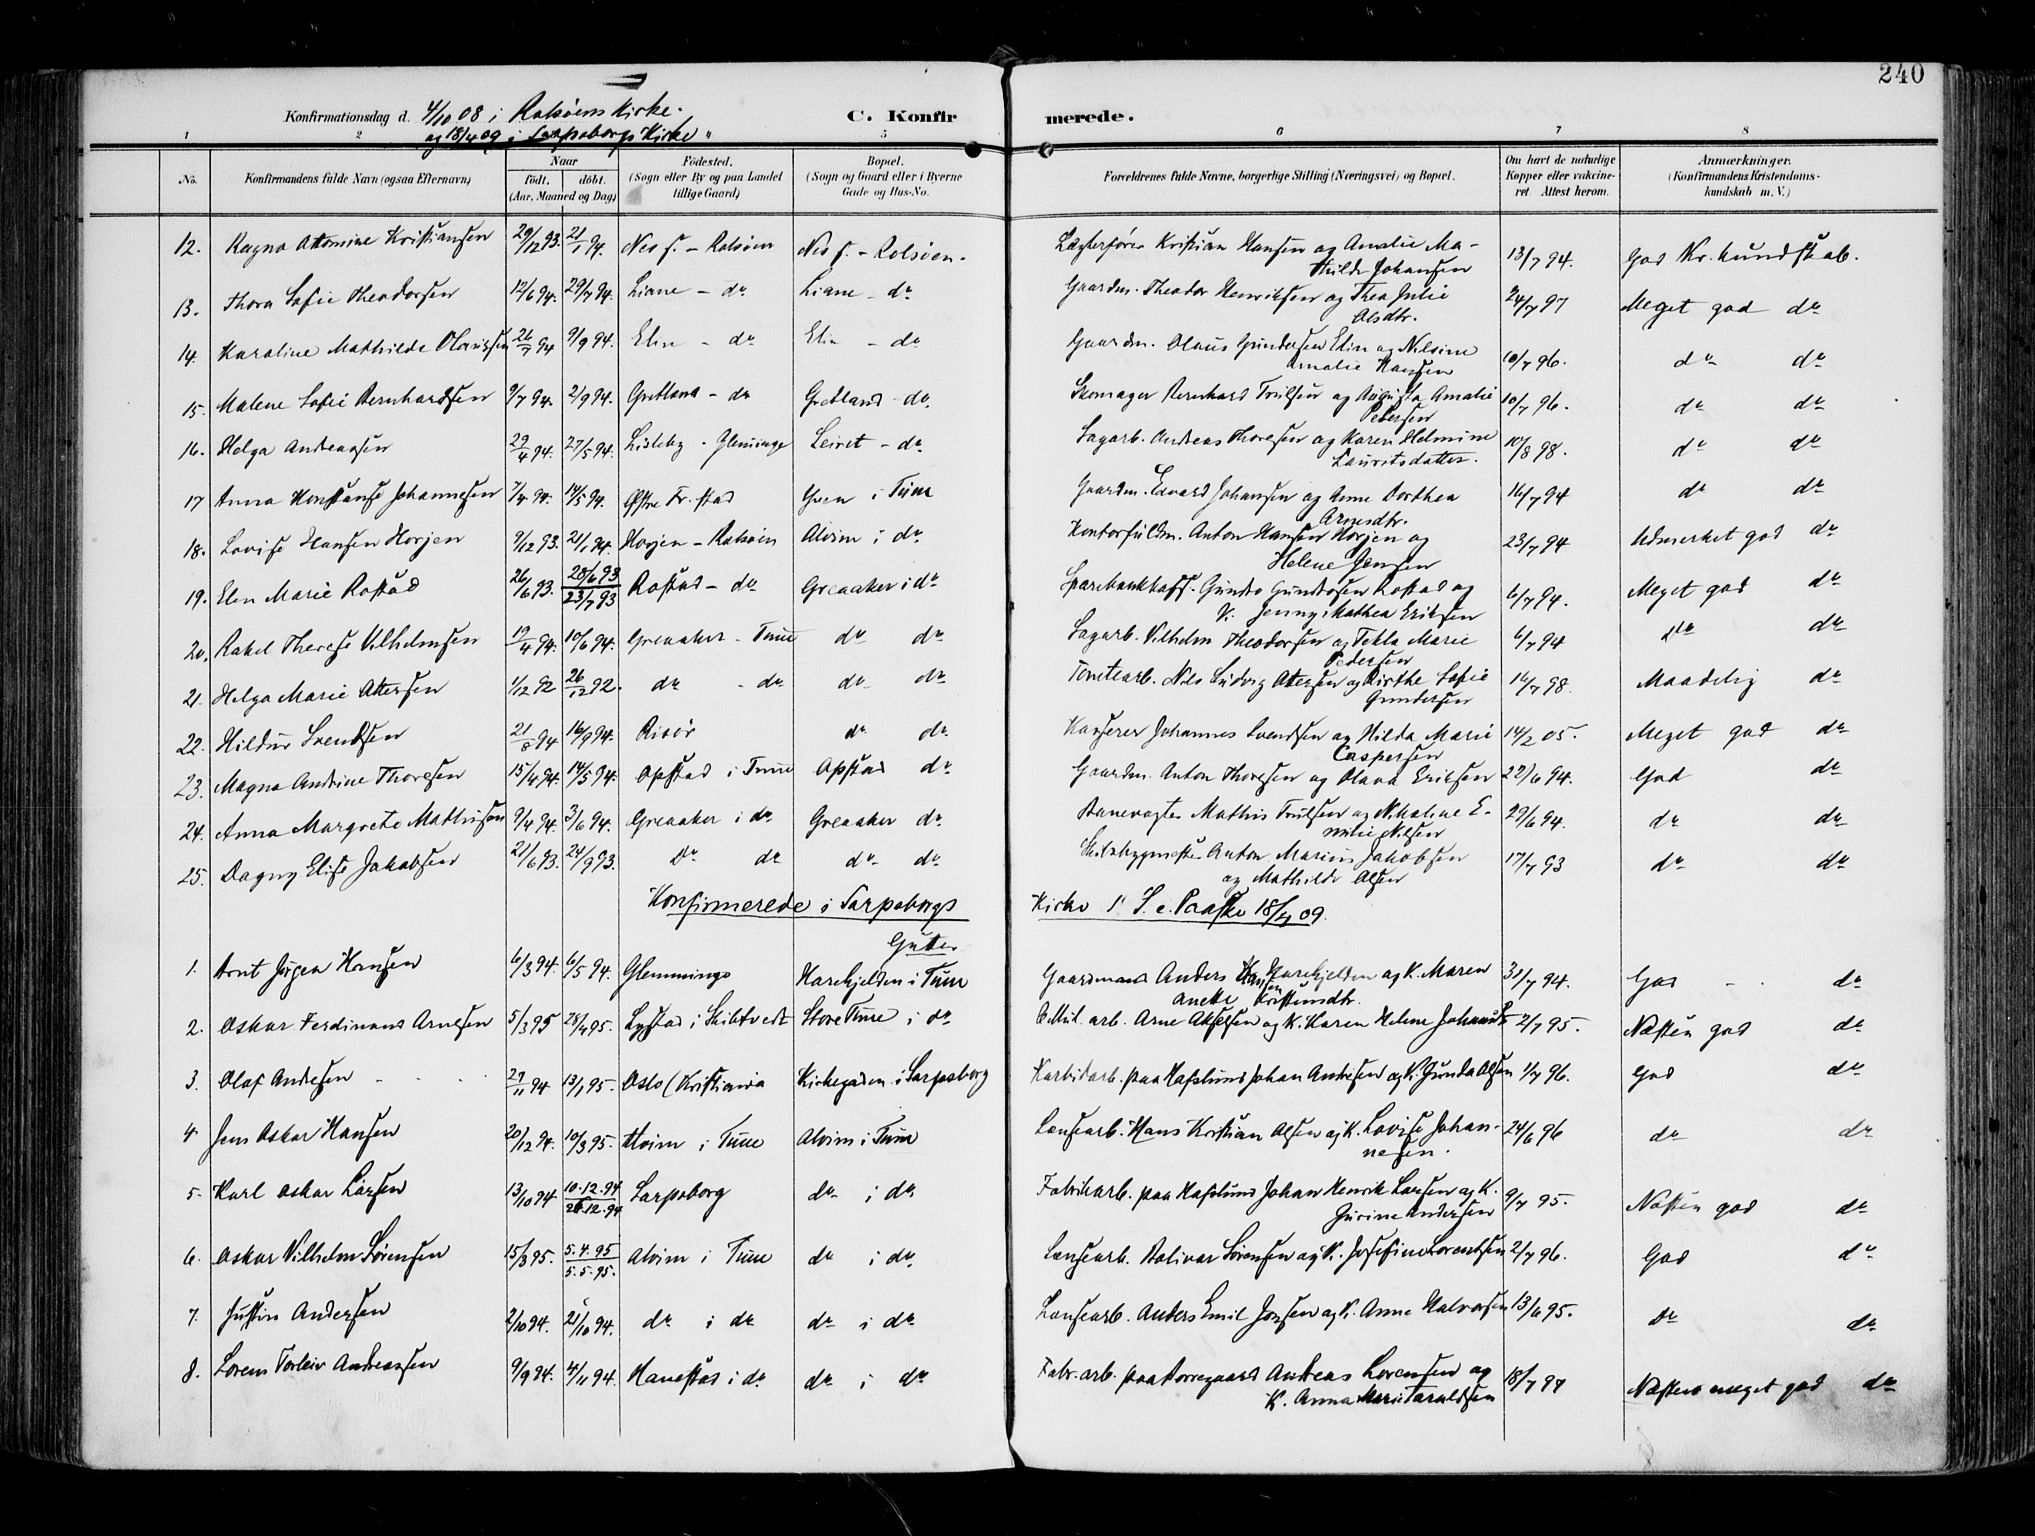 240
Konfirmationsdag d. 4/10 08 i Rolsøens Kirke.
og 18/4 09 i Sarpsborgs Kirke "
C. Konfirmerede.
1 2 5 6 7 8
No. Konfirmandens fulde Navn (ogsaa Efternavn) Naar födt. döbt. (Aar, Maaned og Dag) Födested. (Sogn eller By og paa Landet tillige Gaard) Bopæl. (Sogn og Gaard eller i Byerne Gade og Hus-No. Forældrenes fulde Navne, borgerlige Stilling (Næringsvei) og Bopæl. Om havt de naturlige Kopper eller vakcineret. Attest herom. Anmærkninger. (Konfirmandens Kristendomskundskab m. V.)
12. Ragna Attomine Kristiansen 29/12 93. 21/1 94. Nes s. - Rolsøen Nes s. - Rolsøen. Lægterfører Kristian Hansen og Amalie Ma-
thilde Johansen 13/7 94. God Kr. kundskab.
13. Thora Sofie Theodorsen 12/6 94. 29/7 94. Liane - do Liane - do Gaardm. Theodor Henriksen og Thea Julie
Olsdtr. 24/7 97 Meget god do
14. Karoline Mathilde Olaussen 26/7 94 9/9 94. Elin - do Elin - do Gaardm. Olaus Gundersen Elin og Nilsine
Amalie Hansen 10/7 96. do do
15. Malene Sofie Bernhardsen 9/7 94. 2/9 94. Gretland - do Gretland - do. Skomager Bernhard Trulsen og Augusta Amalie
Petersen 10/7 96. do do
16. Helga Andreassen 29/4 94. 27/5 94. Lisleby - Glemminge Leiret - do Sagarb. Andreas Thoresen og Karen Helmine
Lauritsdatter. 10/8 98. do do
17 Anna Konstanse Johannesen 7/4 94. 14/5 94. Østre Fr.stad Yven i Tune Gaardm. Edvard Johansen og Anne Dorthea
Arnesdtr. 16/7 94 do do
18. Lovise Hansen Horjen 9/12 93. 21/1 94. Horjen - Rolsøen Alvim i do Kontorfuldm. Anton Hansen Horjen og
Helene Jensen 23/7 94 Udmerket god do
19. Elen Marie Rostad 26/6 93. 28/6 93 23/7 93 Rostad - do Greaaker i do Sparebankkass. Gundro Gundrosen Rostad og
K. Jenny Mathea Eriksen 6/7 94. Meget god do
20. Rakel Therese Vilhelmsen 19/4 94. 10/6 94. Greaaker - Tune do do Sagarb. Vilhelm Theodorsen og Tekla Marie
Pedersen 6/7 94 do do
21. Helga Marie Attersen 1/12 92 26/12 92. do - do do do Tomtearb. Nils Ludvig Attersen og Birthe Sofie
Gundersen 16/7 98. Maadelig do
22. Hildur Svendsen 21/8 94 16/9 94. Risør do do. Kasserer Johannes Svendsen og Hilda Marie
Caspersen 14/2 05. Meget god do
23. Magna Andrine Thoresen 15/4 94. 14/5 94. Opstad i Tune Opstad do Gaardm. Anton Thoresen og Olava Eriksen 22/6 94. God do
24. Anna Margrete Mathisen 9/4 94. 3/6 94. Greaaker i do. Greaaker do. Banevogter Mathis Trulsen og Nikoline E-
milie Nilsen 29/6 94. do do
25. Dagny Elise Jakobsen 21/6 93. 24/9 93. Do do do do. Skibsbygmester Anton Marius Jakobsen
og Mathilde Olsen 17/7 93 do do
Konfirmerede i Sarpsborgs Kirke 1 S. e. Paaske 18/4 09.
Gutter
1. Arnt Jørgen Hansen 6/3 94. 6/5 94. Glemminge Harehjelden i Tune Gaardmand Anders Hansen Harehjelden og K. Maren
Anette Kristensdtr. 31/7 94. God do
2. Oskar Ferdinand Arnesen 5/3 95 28/4 95. Lystad i Skibtvedt Store Tune i do Mil. arb. Arne Akselsen og K. Karen Helene 2/7 95. Næsten god do
3. Olaf Andesen 29/11 94 13/1 95. Oslo (Kristiania Kirkegaden i Sarpsborg Karbidarb. paa Hafslund Johan Andresen og K. Gunda Olsen 1/7 96. God do
4 Jens Oskar Hansen 20/12 94. 10/3 95. Alvim i Tune Alvim i Tune Lænsearb. Hans Kristian Olsen og K. Lovise Johan-
nesen. 24/6 96 do do
5. Karl Oskar Larsen 13/10 94 10.12.94 26.12.94 Sarpsborg do i do. Fabrikarb. paa Hafslund Johan Henrik Larsen og K.
Gurine Andersen 9/7 95. Næsten god do
6. Oskar Vilhelm Sørensen 15/3 95. 5.4.95 5.5.95. Alvim i Tune do i do. Lænsearb. Bolivar Sørensen og K. Josefine Lorentsen 2/7 96. God do
7. Justin Andersen 2/10 94. 21/10 94. do i do do i do Lænsearb. Anders Emil Jonsen og K. Anne Halvorsen 13/6 95. do do
8. Lorens Torleiv Andreassen 9/9 94. 4/11 94. Hanestad i do do i do Fabr. arb. paa Borregaard Andreas Lorensen og
K. Anna Marie Taraldsen 18/7 97 Næsten meget god do